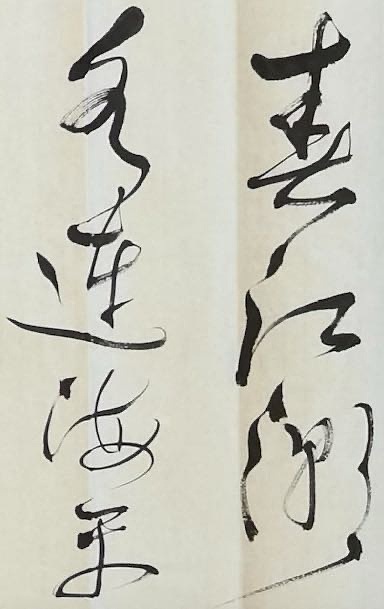 春江潮
水連海平